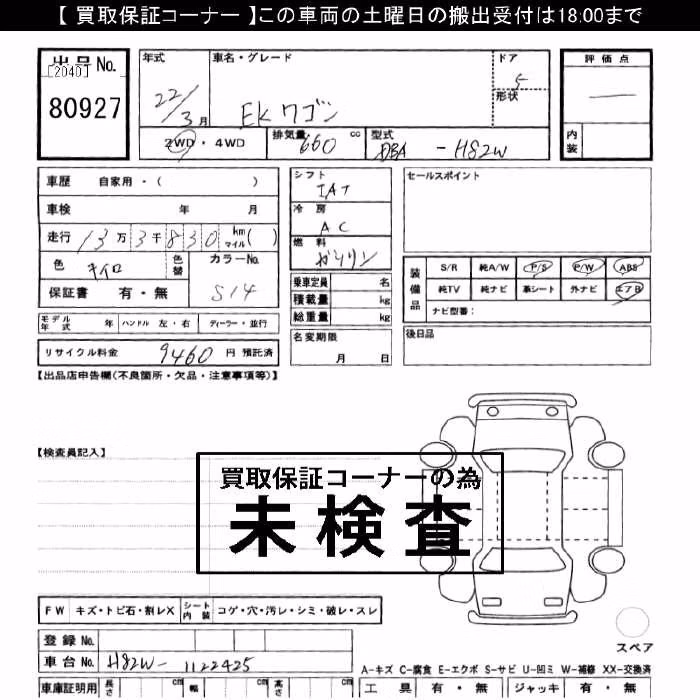 【 買取保証コーナー 】この車両の土曜日の搬出受付は18:00まで
出品No.
[2040]
80927
年式
22/3月
車名・グレード
EKワゴン
ドア
5
形状
評価点
—
内装
2WD・4WD
排気量 660 cc
型式 DBA - H82W
車歴 自家用・( )
車検 年 月
走行 13万3千830 km マイル( )
色 キイロ
色替
カラーNo.
S14
保証書 有・無
シフト
IAT
冷房
AC
燃料
ガソリン
乗車定員 名
積載量 kg
総重量 kg
セールスポイント
装備品
S/R 純A/W P/S P/W ABS
純TV 純ナビ 革シート 外ナビ エアB
ナビ型番:
モデル年式 年 ハンドル 左・右 ディーラー・並行
リサイクル料金 9460 円 預託済
名変期限
月 日
後日品
【出品店申告欄(不良箇所・欠品・注意事項等)】
【検査員記入】
買取保証コーナーの為
未検査
FW キズ・トビ石・割レX シート内装 コゲ・穴・汚レ・シミ・破レ・スレ
スペア
登録No.
車台No. H82W-1122425
A-キズ C-腐食 E-エクボ S-サビ U-凹ミ W-補修 XX-交換済
車庫証明用 長さ cm 幅 cm 高さ cm
工具 有・無 ジャッキ 有・無